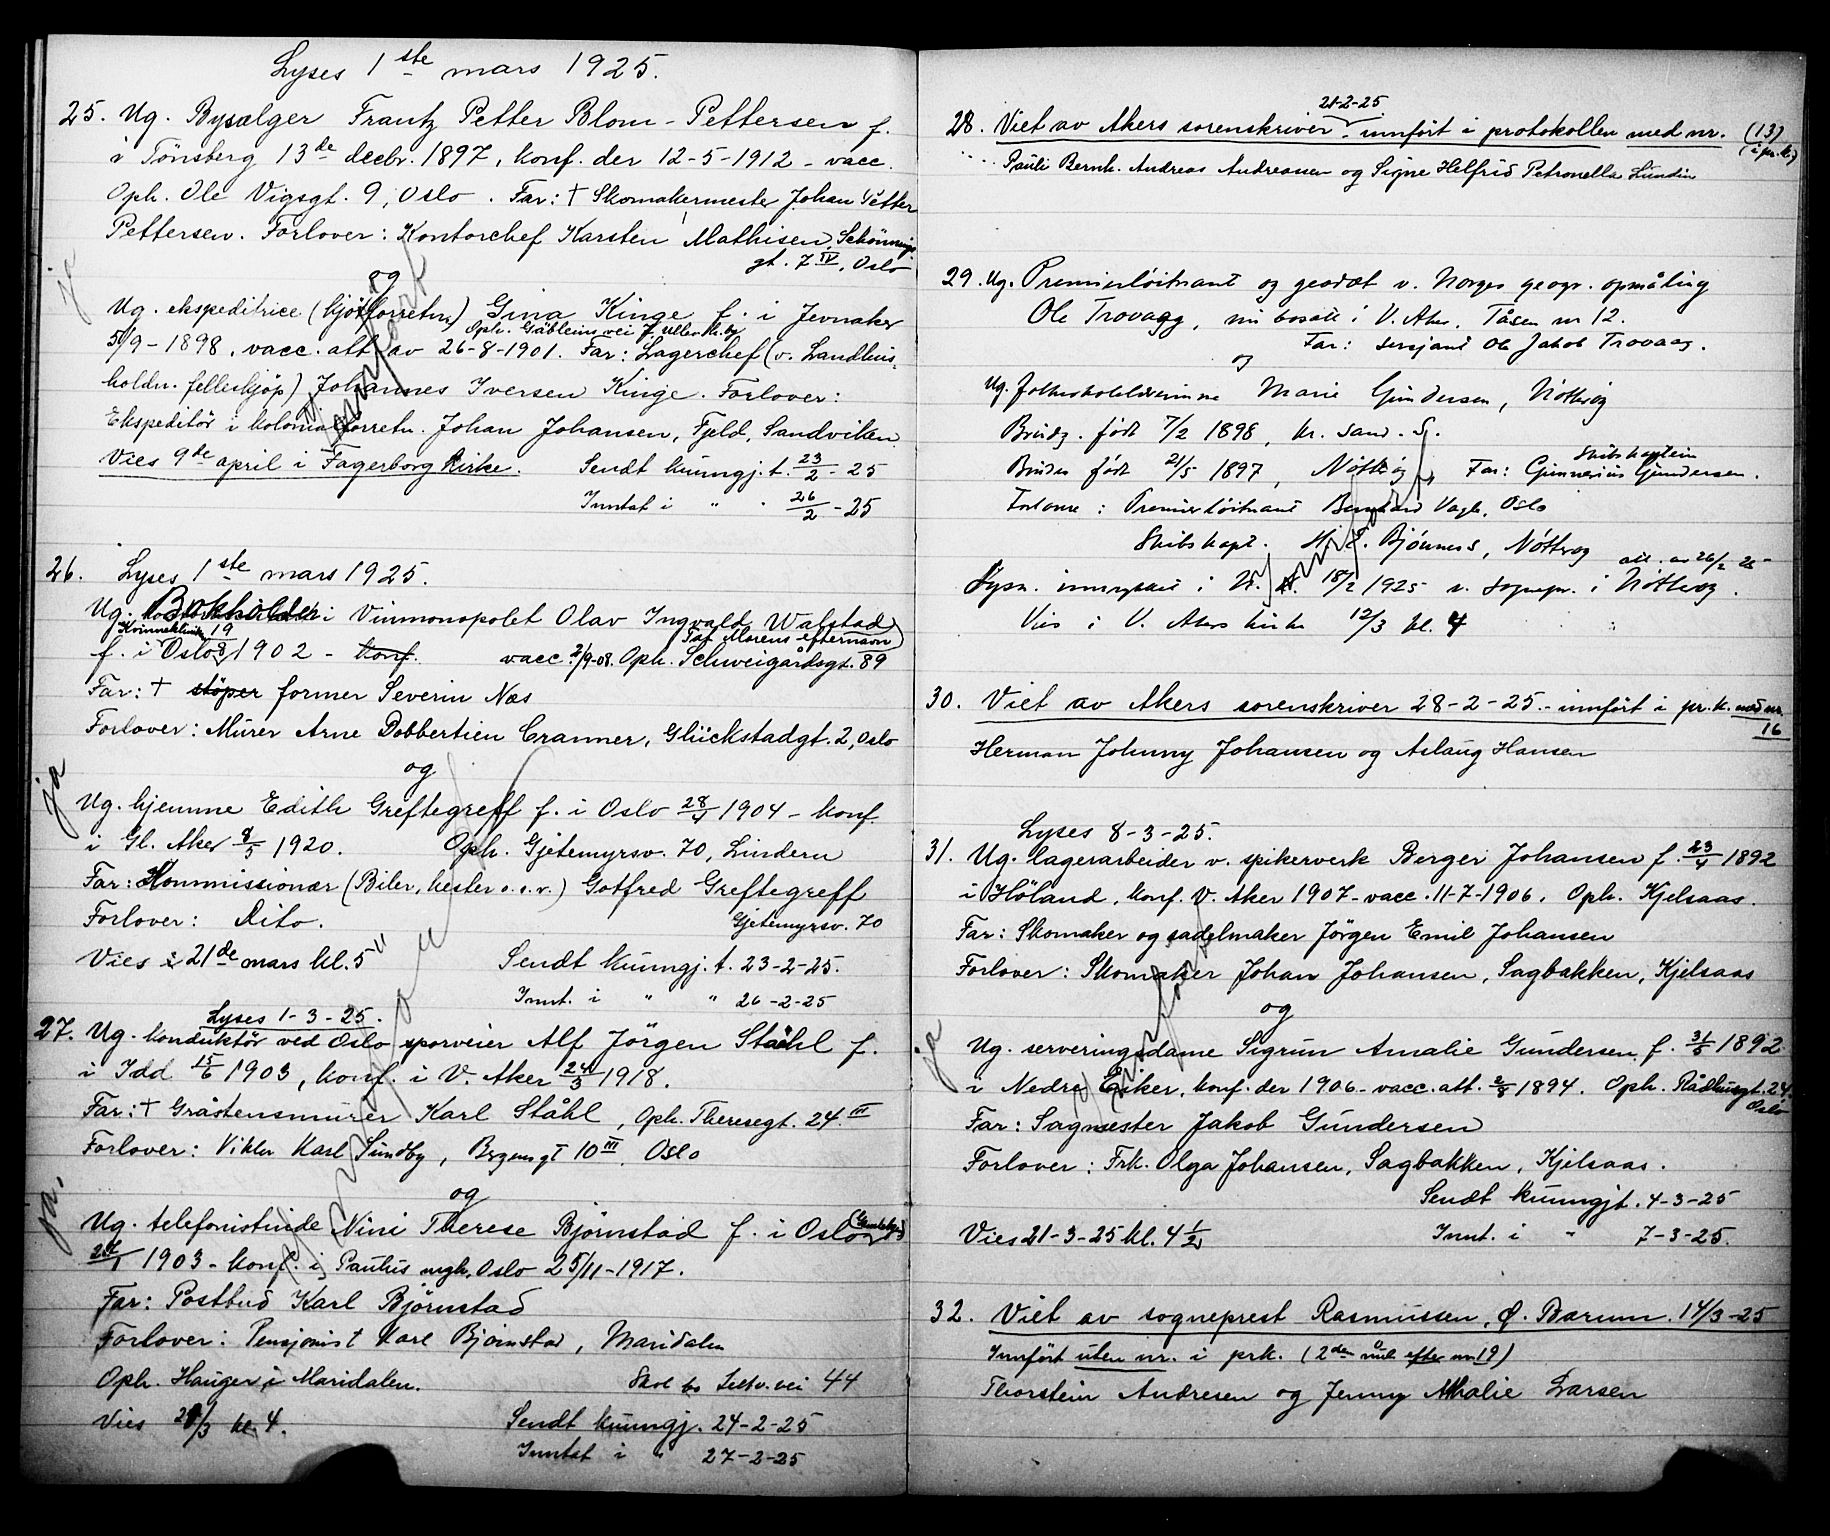 Lyses 1ste mars 1925.
25. Ug. Bysælger Frantz Petter Blom-Pettersen f.
i Tönsberg 13de decbr. 1897, konf. der 12-5-1912 - vacc.
Oph. Ole Vigsgt. 9, Oslo. Far: † Skomakermester Johan Petter
Pettersen. Forlover: Kontorchef Karsten Mathisen, Schönnings
gt. 7 IV, Oslo
ja
og
Ug. ekspeditrice (kjötforretn.) Gina Kinge f. i Jevnaker
Oph.
5/9-1898, vacc. att. av 26-8-1901. Far: Lagerchef (v. Landhus-
holdn. felleskjöp) Johannes Iversen Kinge. Forlover:
Ekspeditör i kolonialforretn. Johan Johansen, Fjeld, Sandviken
Vies 9de april i Fagerborg Kirke. Sendt kunngj. t. 23/2-25
Inntat i " " 26/2-25
26. Lyses 1ste mars 1925.
Ug. Bokholder i Vinmonopolet Olav Ingvald Walstad
(Tat Morens efternavn)
Kvinneklinik
f. i Oslo 19/8 1902 - konf. vacc. 2/9-08. Oph. Schweigårdsgt. 89
Far: † stöper former Severin Næs
Forlover: Murer Arne Dobbertien Cranner, Glückstadgt. 2, Oslo
og
ja
Ug. hjemme Edith Greftegreff f. i Oslo 28/4 1904 - konf.
i Gl. Aker 9/5 1920. Oph. Gjetemyrsv. 70, Lindern
Far: Kommissionær (Biler, hester o.s.v.) Gotfred Greftegreff
Forlover: Dito. Gjetemyrsv. 70
Vies 21de mars kl. 5" Sendt kunngj. t. 23-2-25.
Innt. i " " 26-2-25
Lyses 1-3-25.
27. Ug. konduktör ved Oslo sporveier Alf Jörgen Ståhl f.
i Idd 15/6 1903, konf. i V. Aker 24/3 1918.
Far: † Gråstensmurer Karl Ståhl, Oph. Theresegt. 24 III
Forlover: Vikler Karl Sundby, Bergensgt 10 III, Oslo
og
ja.
Ug. telefonistinde Nini Therese Björnstad f. i Oslo
1903 - konf. i Paulus mgh. Oslo 25/11-1917.
Far: Postbud Karl Björnstad
Forlover: Pensjonist Karl Björnstad, Maridalen
Oph. Haugen i Maridalen. Skal bo vei 44
Vies 21/3 kl. 4. Sendt kunngj. 24-2-25
Inntat i " 27-2-25
21-2-25
28. Viet av Akers sorenskriver - innført i protokollen med nr. (13)
(i pr.k.)
Pauli Bernh. Andreas Andreassen og Signe Helfrid Petronella Lundin
29. Ug. Premierlöitnant og geodæt v. Norges geogr. opmåling
Ole Trovaag, nu bosatt i V. Aker. Tåsen nr 12.
Far: sersjant Ole Jakob Trovaag.
og
Ug. folkeskolelærerinne Marie Gundersen, Nötteröy
Brudg. født 7/2 1898, kr. sand. S.
Skibskaptein
Bruden født 21/5 1897, Nötteröy, Far: Gunnerius Gundersen.
Forlovere: Premierlöitnant Bernhard Vagle, Oslo
Skibskapt. H. E. Björnnes, Nötteröy
att. av 26/2 25
Lysn. innrykket i 18/2 1925 v. sognepr. i Nötteröy.
Vies i V. Akers kirke 12/3 kl. 4
30. Viet av Akers sorenskriver 28-2-25. - innfört i pr.k. med nr.
16
Herman Johnny Johansen og Aslaug Hansen
Lyses 8-3-25.
31. Ug. lagerarbeider v. spikerverk Berger Johansen f. 23/4 1892
i Höland, konf. V. Aker 1907 - vacc. 11-7-1906. Oph. Kjelsaas.
Far: Skomaker og sadelmaker Jörgen Emil Johansen
Forlover: Skomaker Johan Johansen, Sagbakken, Kjelsaas
og
ja
Ug. serveringsdame Sigrun Amalie Gundersen f. 31/5 1892
i Nedre Eiker, konf. der 1906 - vacc. att. 2/8 1894. Oph. Rådhusgt. 24.
Oslo
Far: Sagmester Jakob Gundersen
Forlover: Frk. Olga Johansen, Sagbakken, Kjelsaas.
Sendt kunngjt. 4-3-25
Vies 21-3-25 kl. 4 1/2 Innt. i " 7-3-25.
32. Viet av sogneprest Rasmussen, Ø. Bærum. 14/3-25
Innfört uten nr. i prk. (2den nul efter nr 19)
Thorstein Andresen og Jenny Athalie Larsen